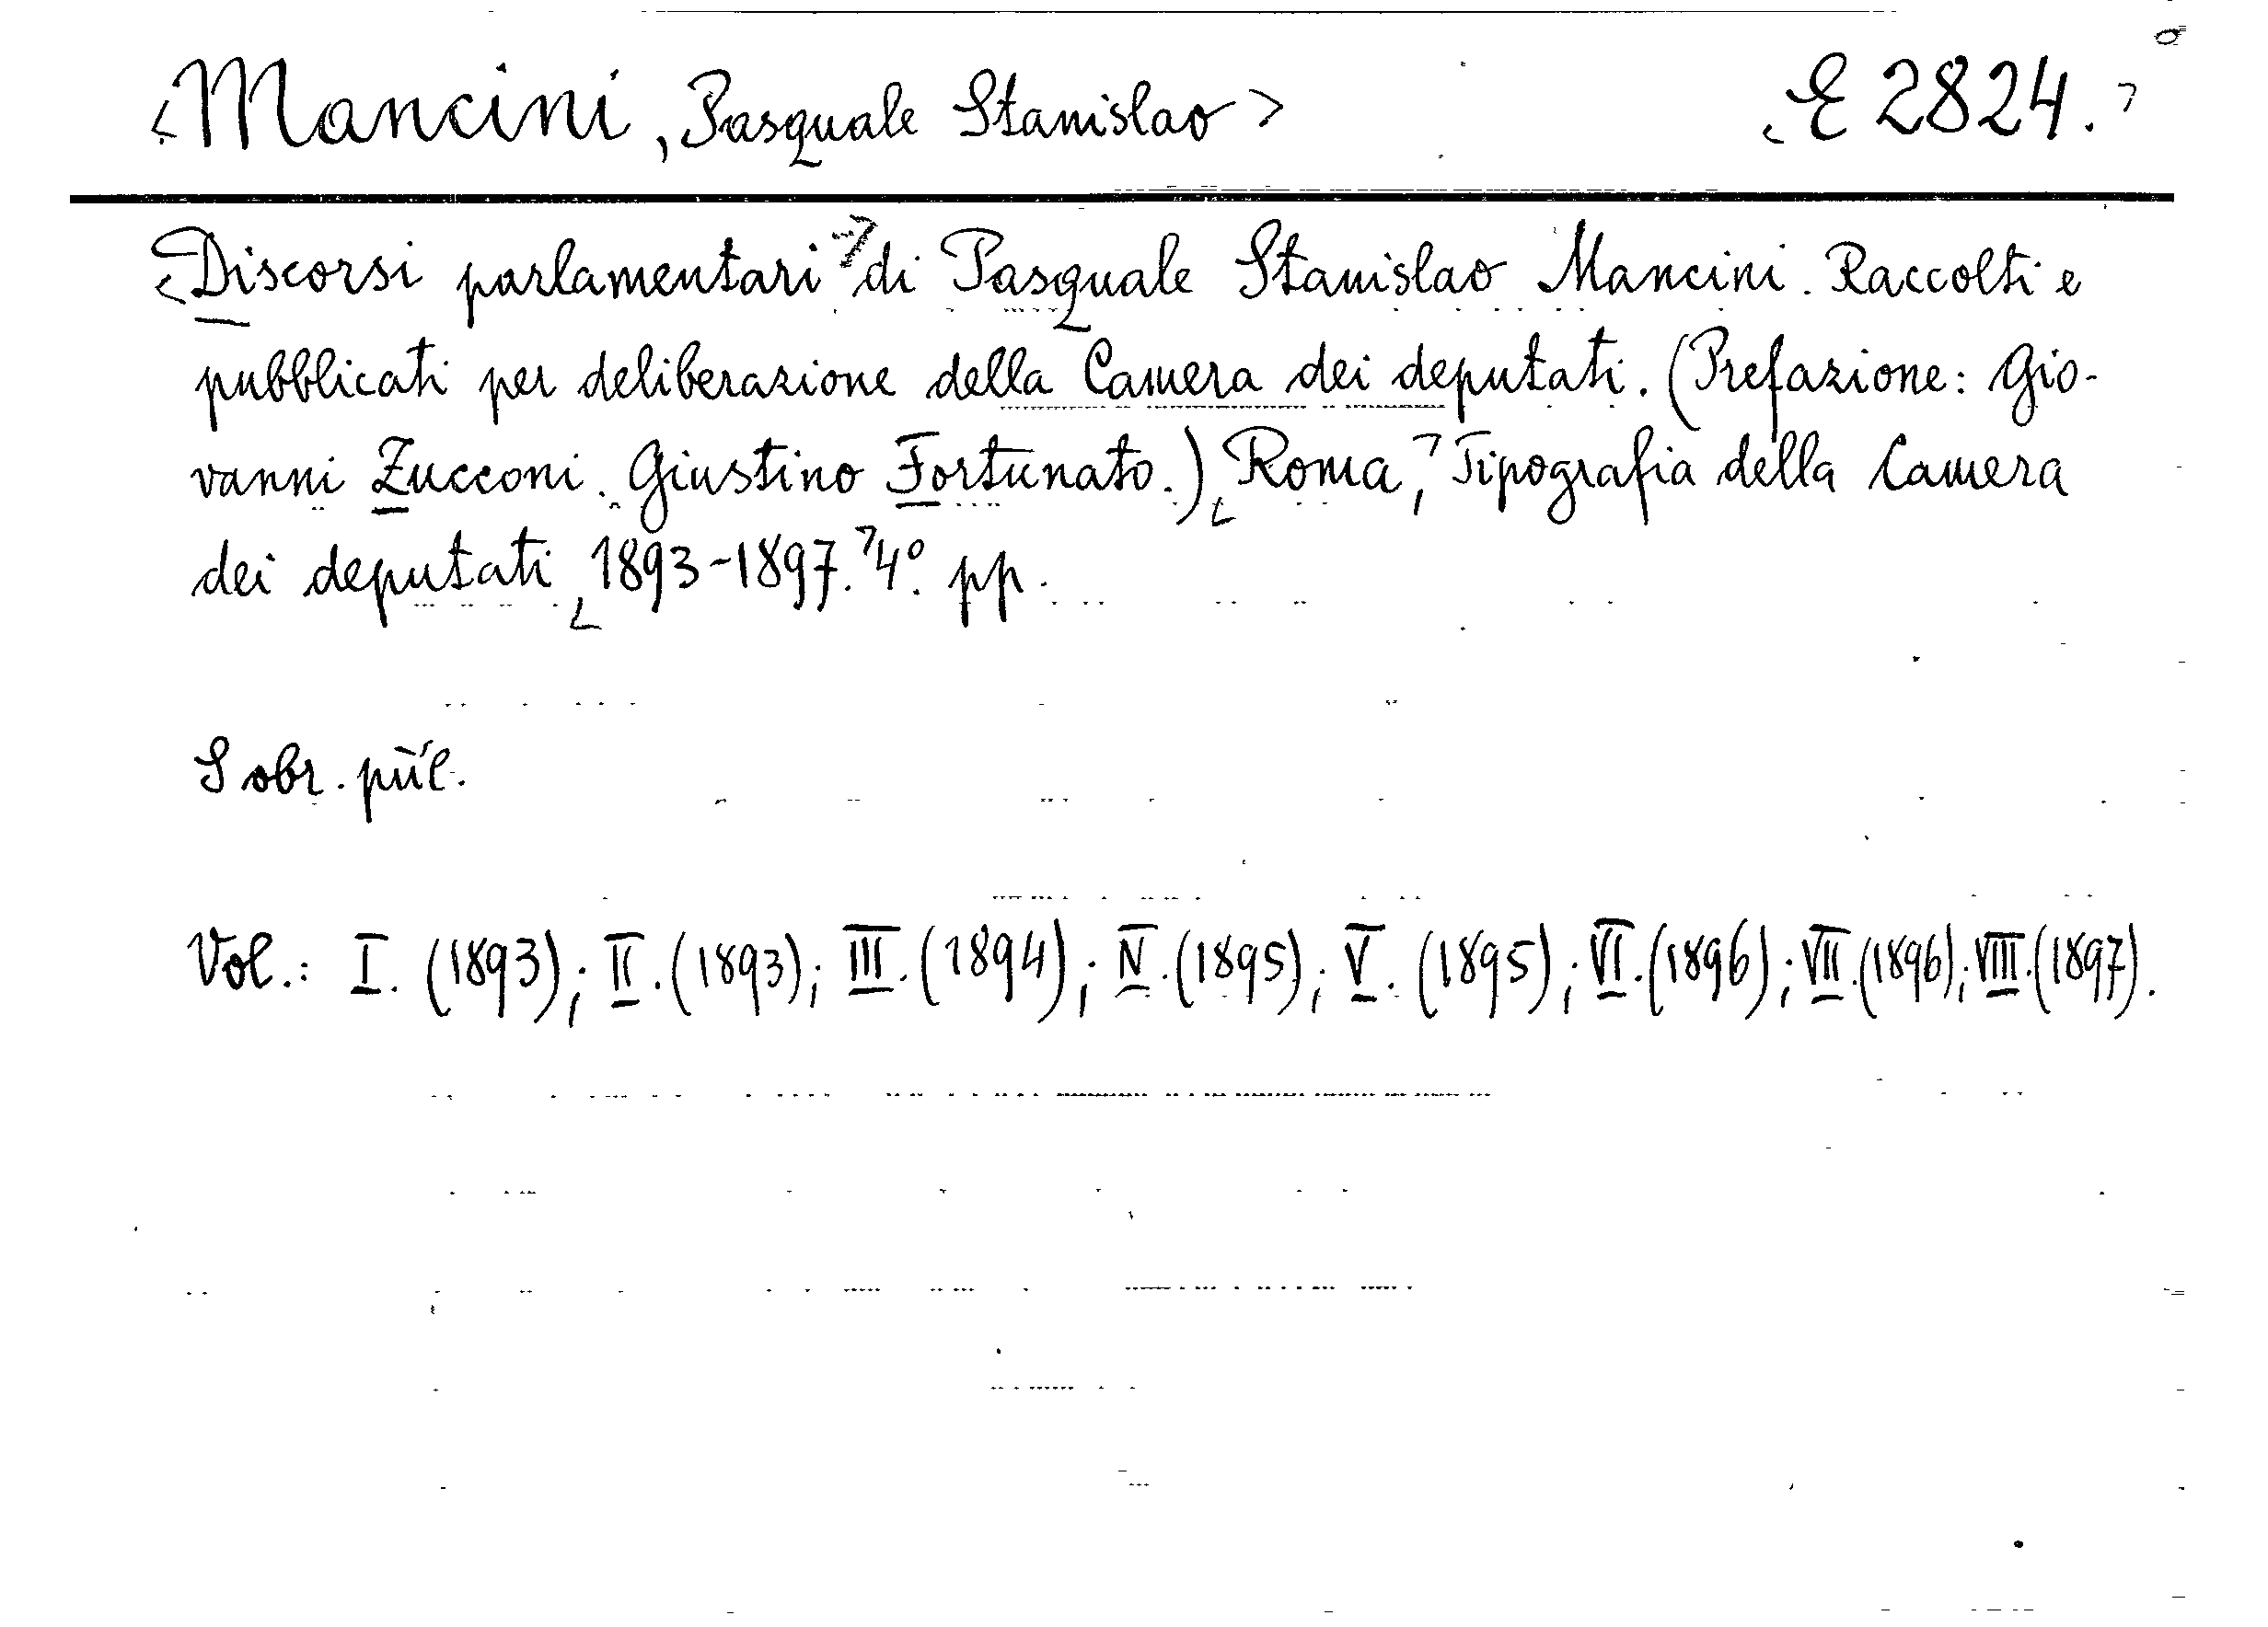 <Mancini, Pasquale Stanislao> <E 2824.>
<Discorsi parlamentari> di Pasquale Stanislao Mancini. Raccolti e
pubblicati per deliberazione della Camera dei deputati. (Prefazione: Gio-
vanni Zucconi. Giustino Fortunato.) <Roma,> Tipografia della Camera
dei deputati, <1893-1897.> 4º. pp.
S obr. příl.
Vol.: I. (1893); II. (1893); III. (1894); IV. (1895); V. (1895); VI. (1896); VII. (1896); VIII. (1897).